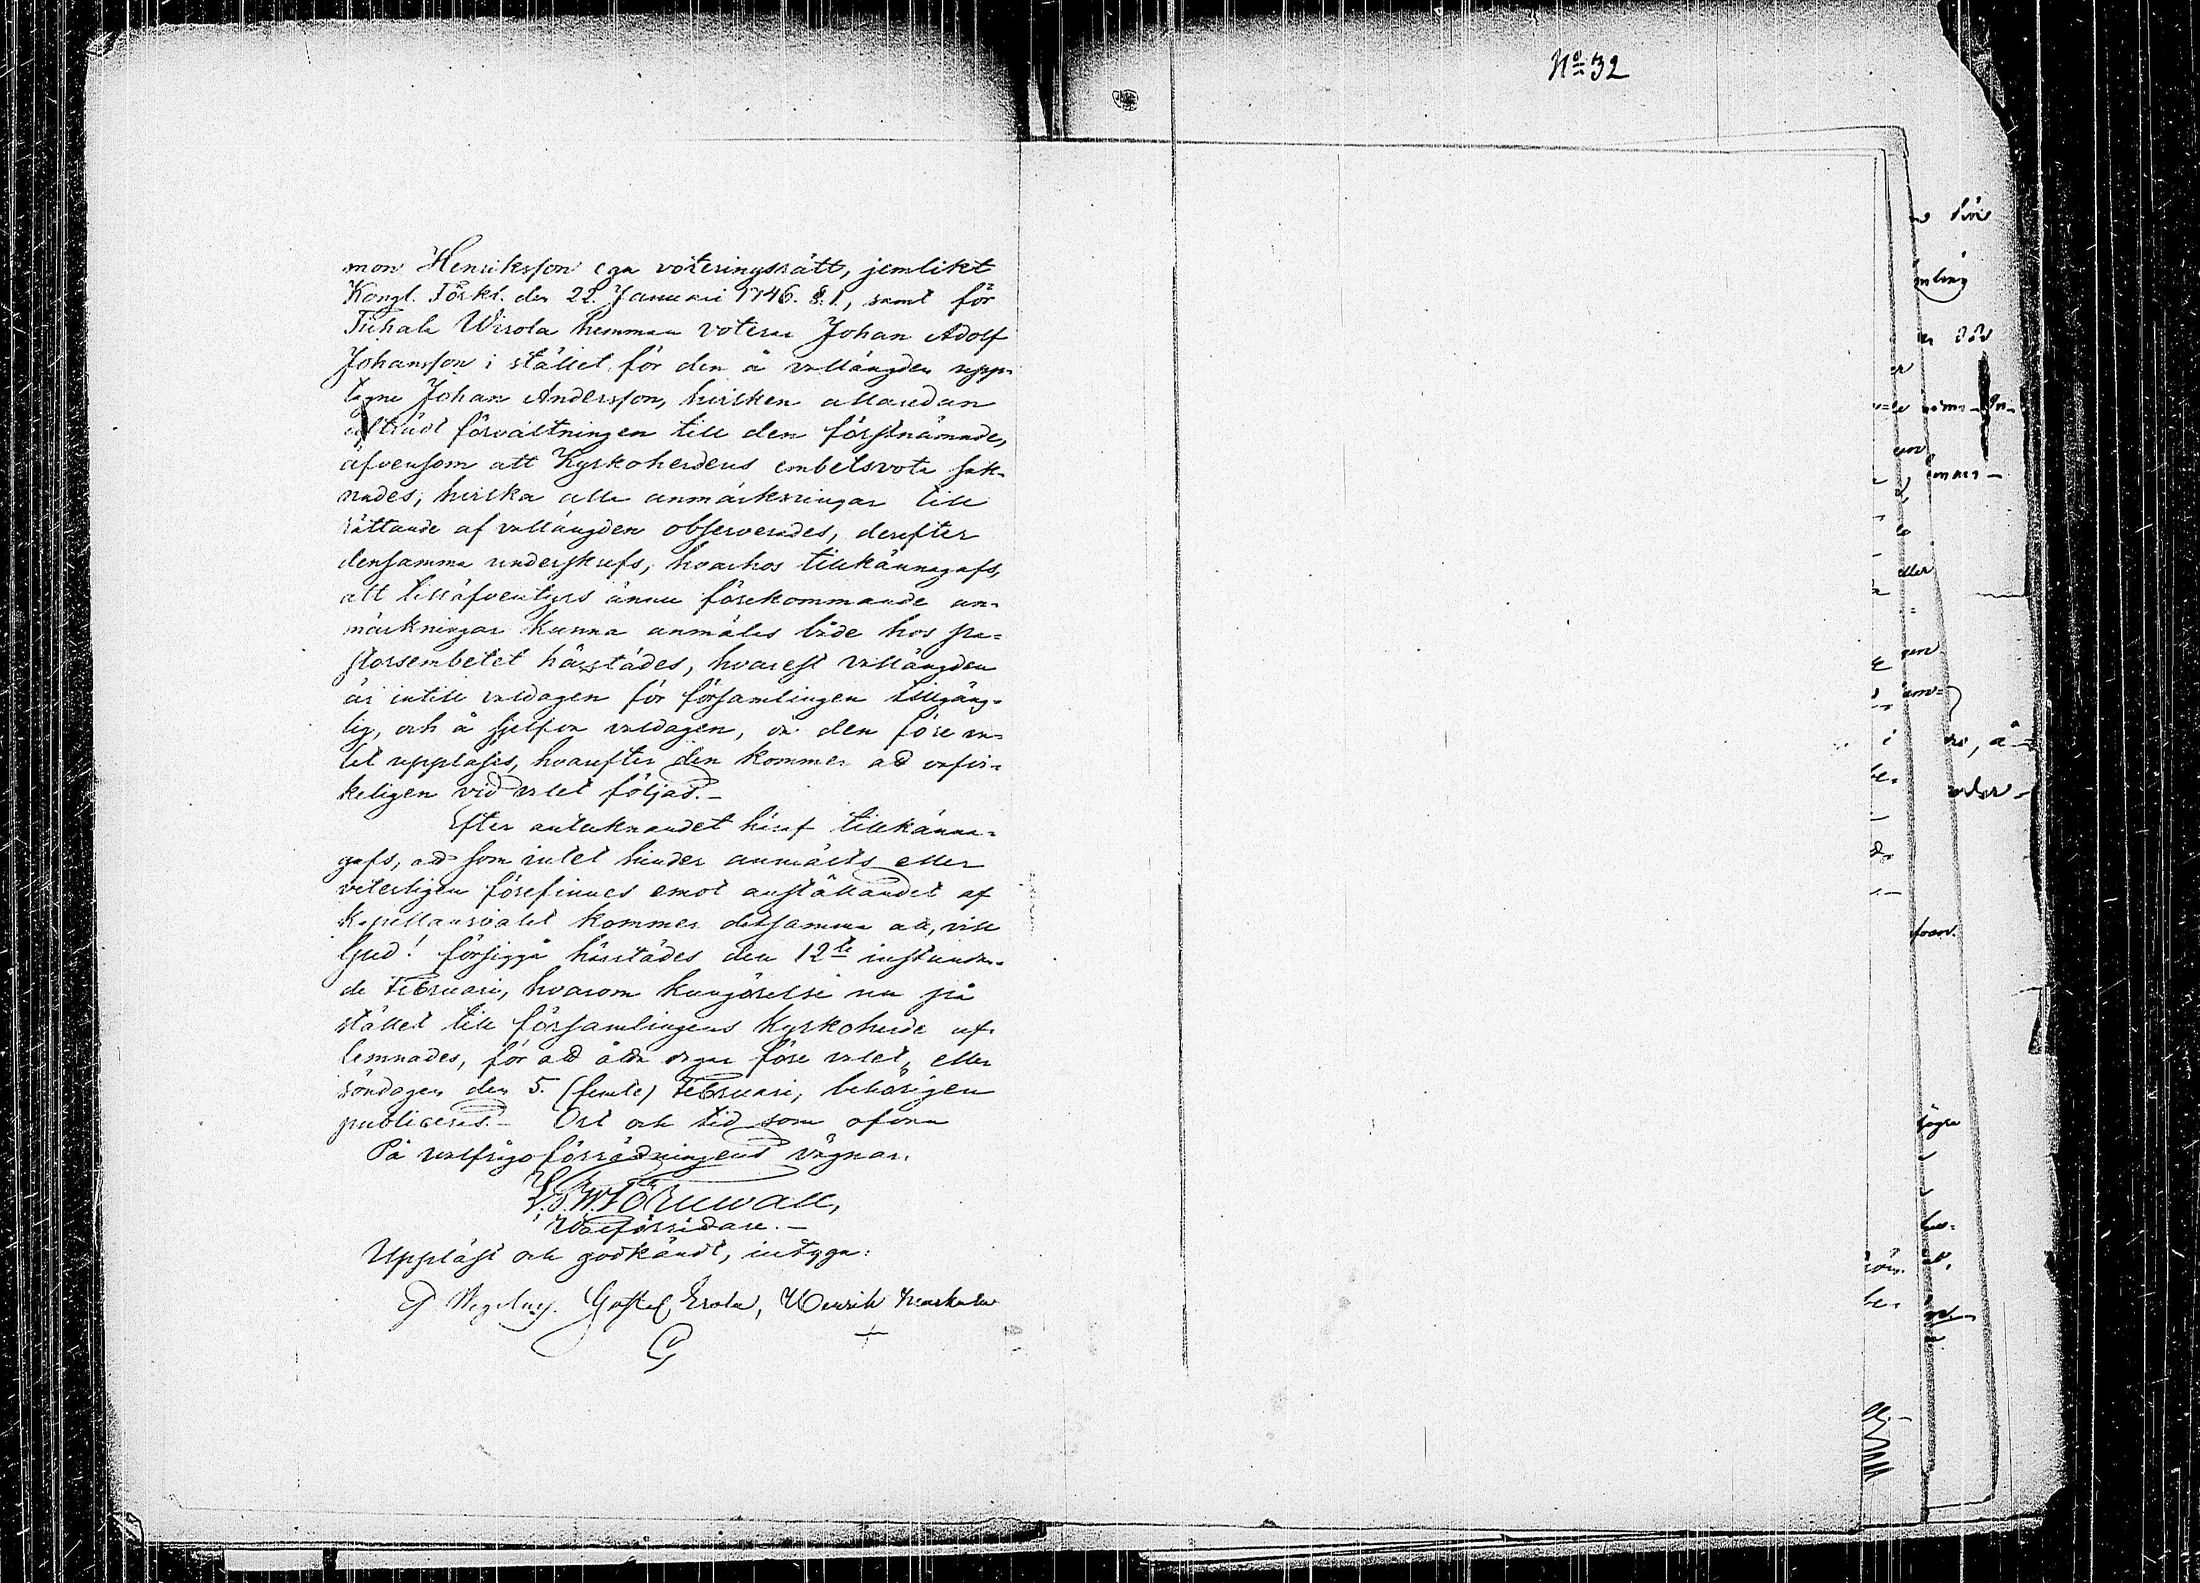 No 32
mon Henriksson ega voteringsrätt, jemlikt
Kongl. Förkl. den 22. Januari 1746. §. 1, samt för
Tuhala Wirola hemman voterar Johan Adolf
Johansson i stället för den å vallängden upp-
tagne Johan Andersson, hvilken allaredan
afträdt förvaltningen till den förstnämnde,
äfvensom att Kyrkoherdens embetsvota sak-
nades; hvilka alla anmärkningar till
rättande af vallängden observerades, derefter
densamma underskrefs, hvarhos tillkännagafs,
att tilläfventyrs ännu förekommande an-
märkningar kunna anmälas både hos pa-
storsembetet härstädes, hvarest vallängden
är intill valdagen för församlingen tillgäng-
lig, och å sjelfva valdagen, då den före va-
let uppläses, hvarefter den kommer att
keligen vid valet följas.-
Efter antecknandet häraf tillkänna-
gafs, att som intet hinder anmälts eller
veterligen förefinnes emot anställandet af
kapellansvalet kommer detsamma att, vill
Gud! försiggå härstädes den 12te instunda-
de Februari, hvarom kungörelse nu på
stället till församlingens Kyrkoherde af-
lemnades, för att åtta dagar före valet, eller
söndagen den 5. (femte) Februari, behörigen
publiceras.- Ort och tid som ofvan
På valförrättningens vägnar:
Förnwall,
Valförrättare.-
Uppläst och godkändt, intyga:
G Wegelius. Gustaf Erola, Henrik
eller